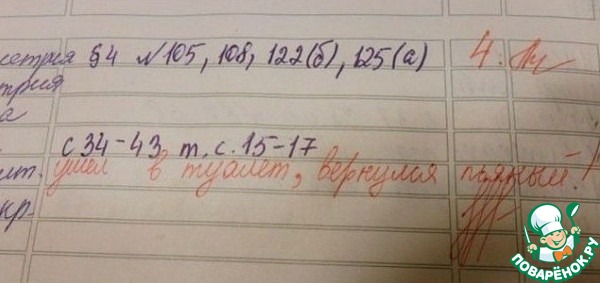 метрия §4 №105, 108, 122(б), 125(а) 4.
трия
а
с 34-43, т. с. 15-17
ит. ушел в туалет, вернулся пьяный!
кр.
ПОВАРЁНОК.РУ